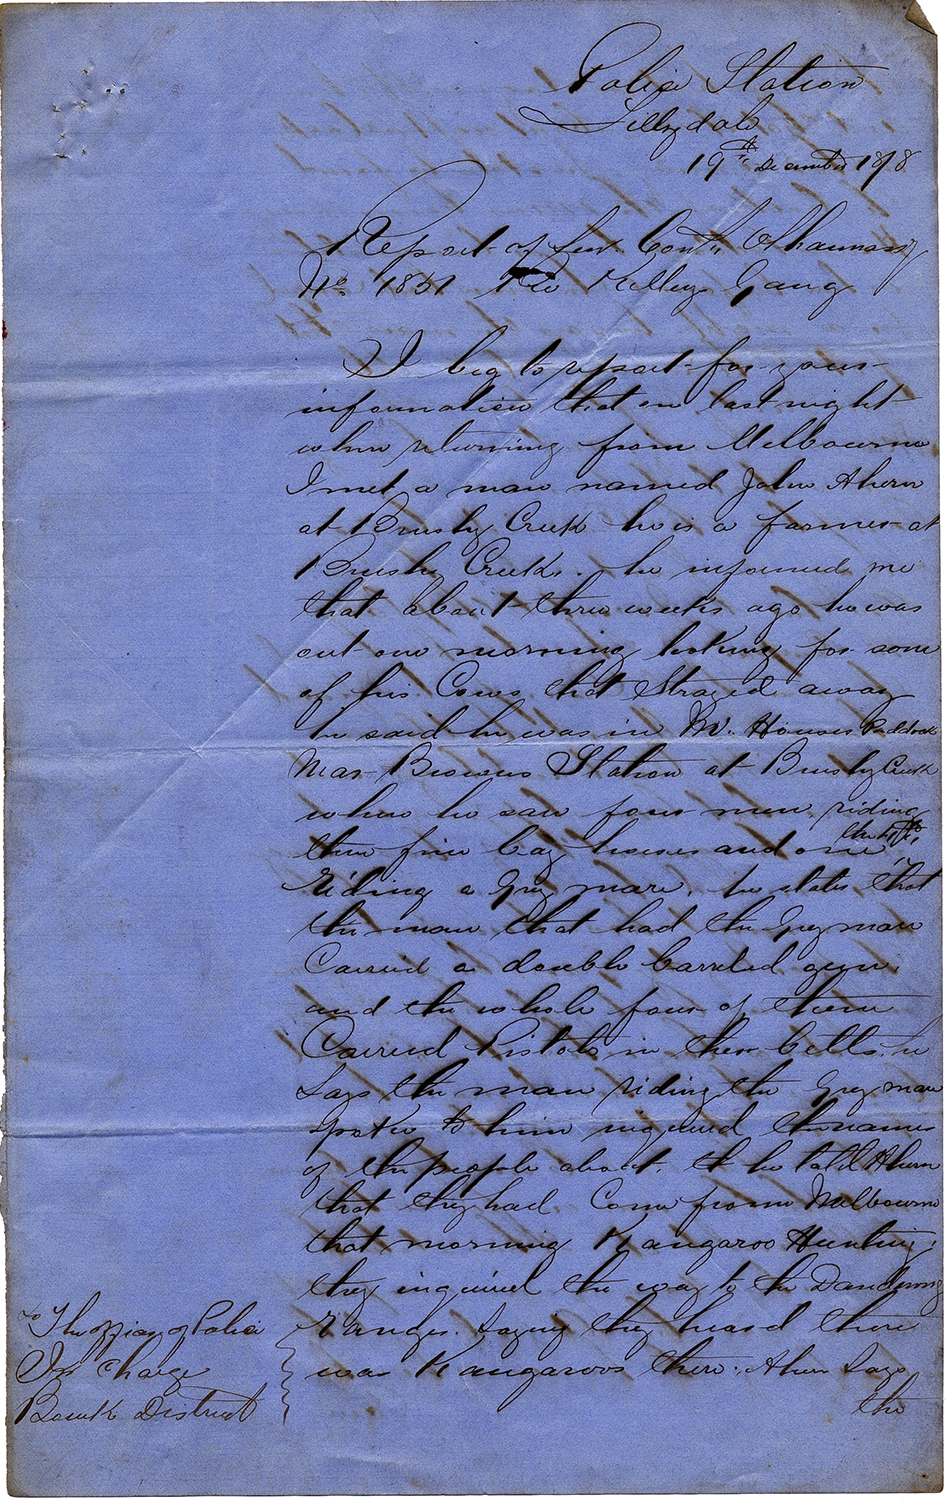 Police Station
Lillydale
19th December 1878
Report of Senr Const. Shannassy
No 1851 Re Kelleys Gang
I beg to report for your
information that on last night
when returning from Melbourne
I met a man named John Ahern
at Brushy Creek he is a farmer at
Brushy Creek. he informed me
that about three weeks ago he was
out one morning looking for some
of his Cows that Strayed away
he said he was in Mr. Houses Paddock
near Browns Station at Brushy Creek
when he saw four men riding
three fine bay horses and one
Riding a Grey mare. he states that
the man that had the Grey mare
Carried a double barreled gun.
and the whole four of them
Carried Pistols in their belts. he
Says the man riding the Grey mare
Spoke to him inquired the names
of the people about. & he told Ahern
that they had Come from Melbourne
that morning Kangaroo Hunting.
they inquired the way to the Dandenong
Ranges. Saying they heard there
was Kangaroos there. Ahern Says
the
To The officer of Police
In Charge
Bourke District